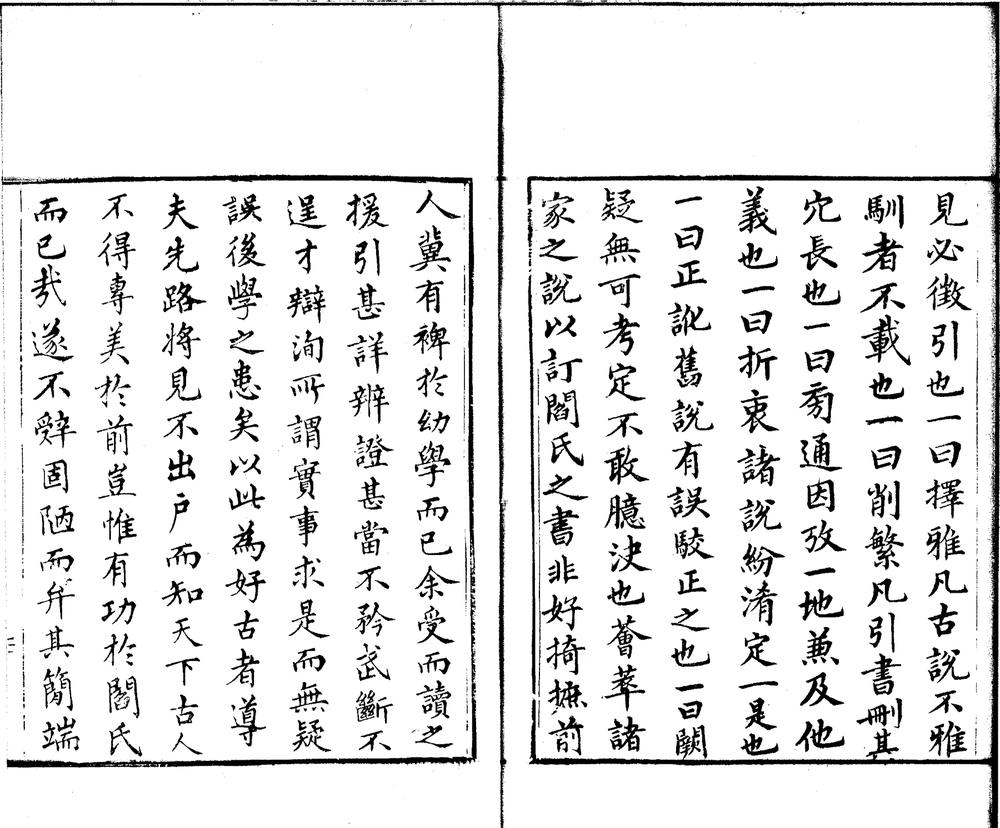 見必徴引也一曰擇雅凡古說不雅
馴者不載也一曰削繁凡引書刪其
宂長也一曰旁通因攷一地兼及他
義也一曰折衷諸說紛淆定一是也
一曰正訛舊說有誤駮正之也一曰闕
疑無可考定不敢臆決也薈萃諸
家之說以訂閻氏之書非好掎摭前
人冀有裨於幼學而已余受而讀之
援引甚詳辨證甚當不矜武斷不
逞才辯洵所謂實事求是而無疑
誤後學之患矣以此為好古者導
夫先路將見不出戶而知天下古人
不得專美於前豈惟有功於閻氏
而已哉遂不辭固陋而弁其簡端